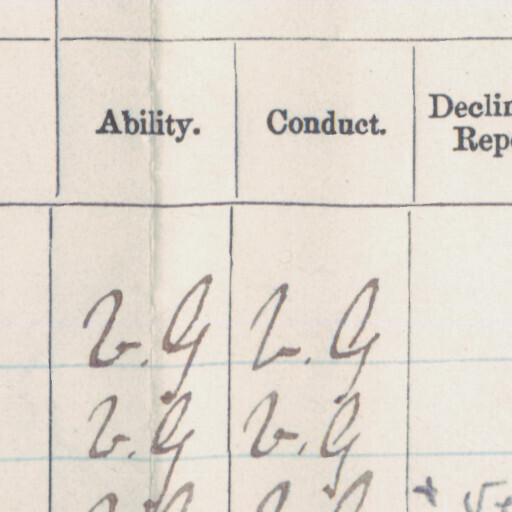 Ability. Conduct. Declin
Rep
V. G V. G
V. G V. G